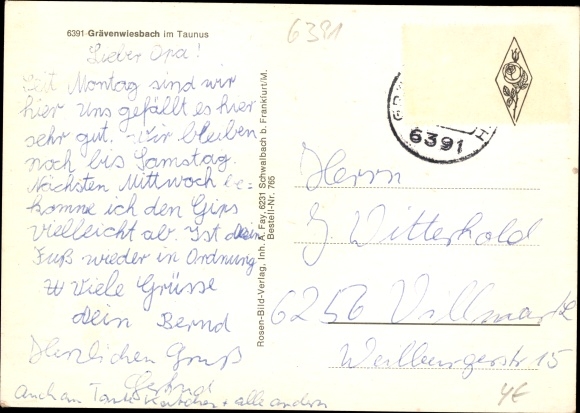 6391 Grävenwiesbach im Taunus
6391
Lieber Opa!
Seit Montag sind wir
hier. Uns gefällt es hier
sehr gut. Wir bleiben
noch bis Samstag.
Nächsten Mittwoch be-
komme ich den Gips
vielleicht ab. Ist dein
Fuß wieder in Ordnung
Viele Grüsse
Dein Bernd
Herzlichen Gruß
Auch an Tante + alle andern
Rosen-Bild-Verlag, Inh. A. Fay, 6231 Schwalbach b. Frankfurt/M.
Bestell-Nr. 765
6391
Herrn
J. Witterhold
6256 Villmar
Weilburgerstr 15
4€